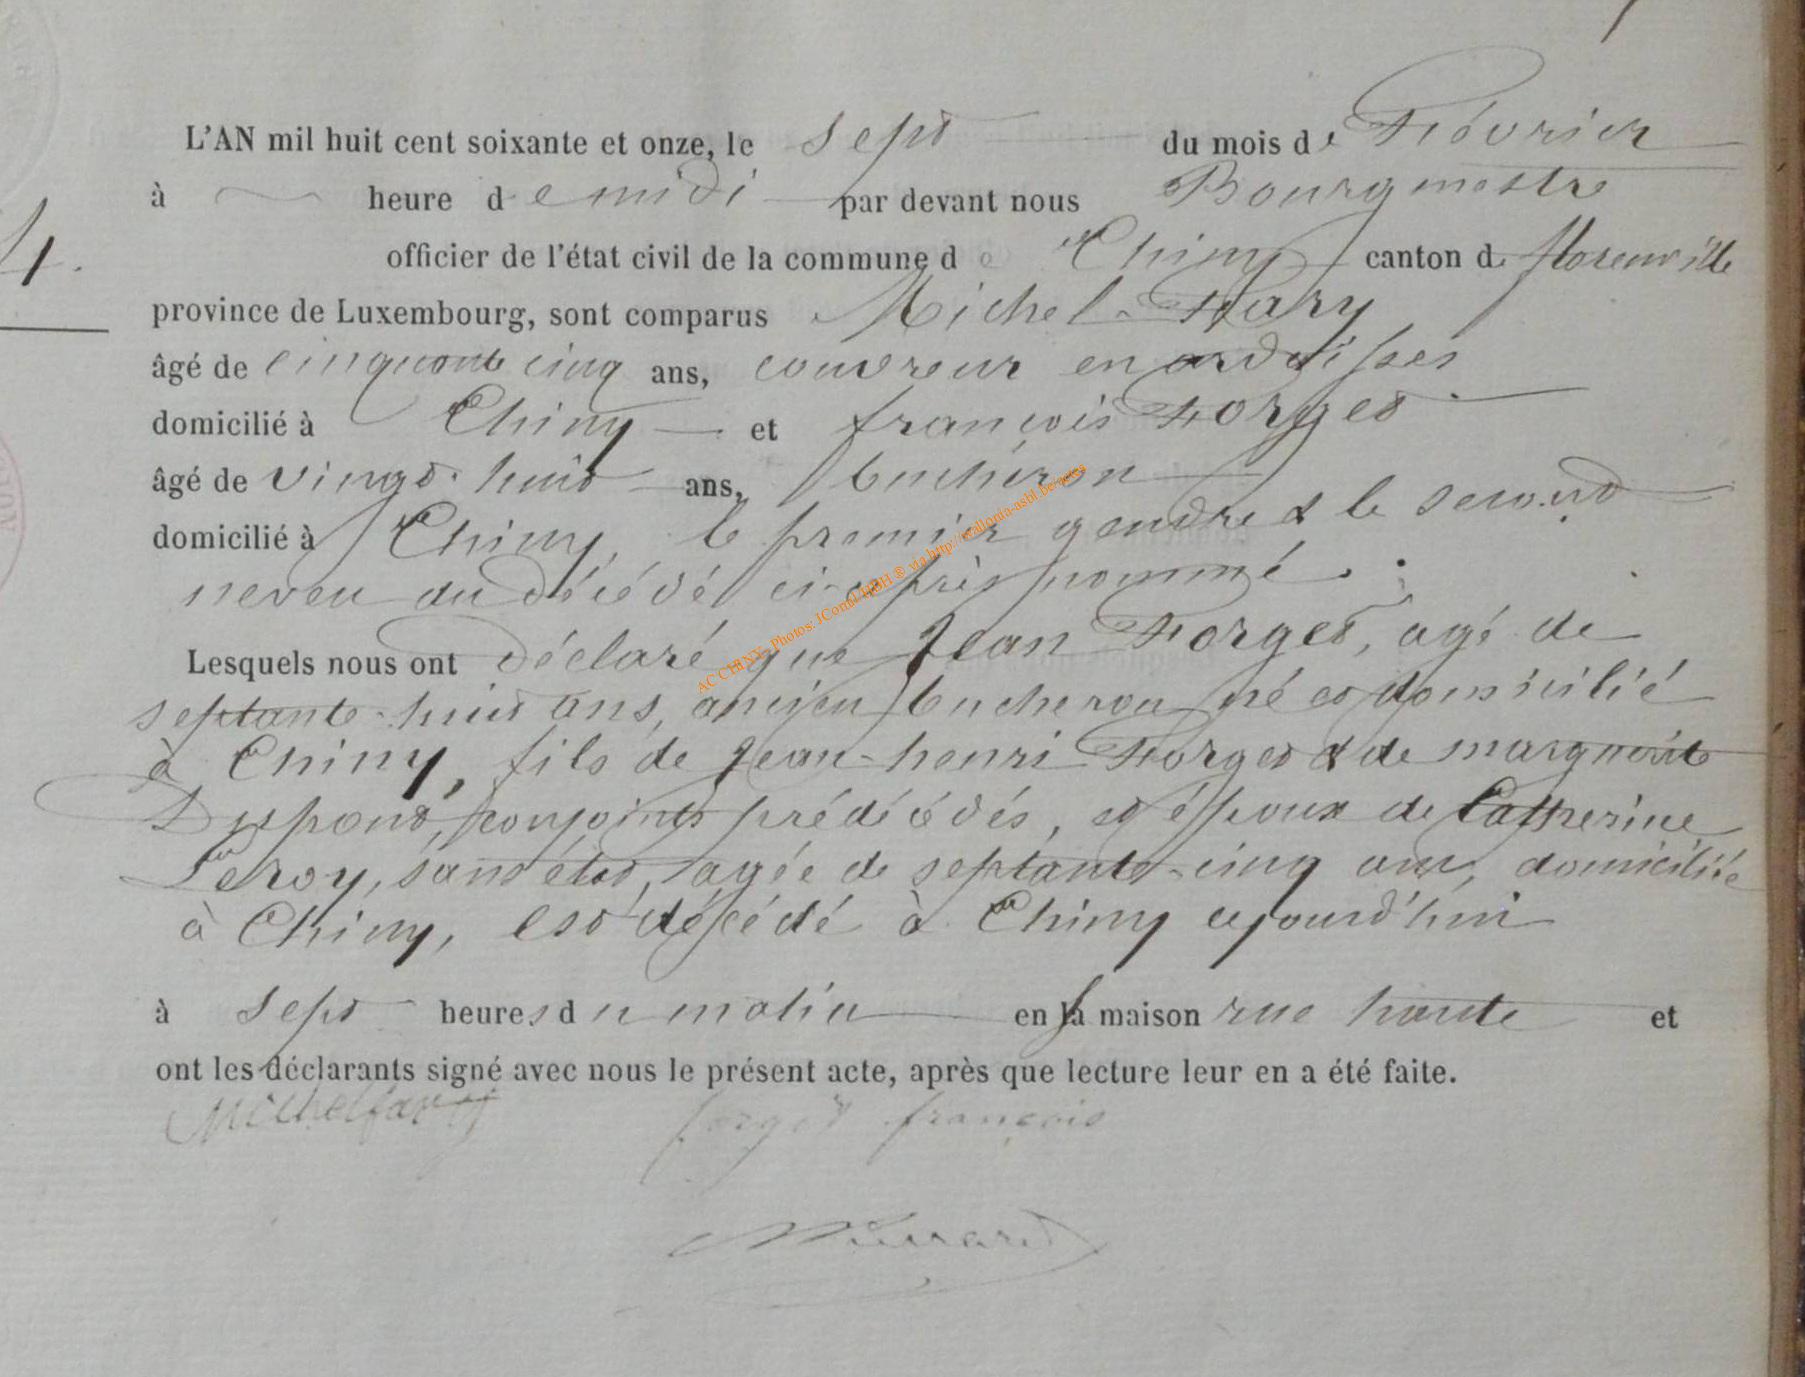 L'AN mil huit cent soixante et onze, le sept du mois de Février
à heure de midi par devant nous Bourgmestre
4. officier de l'état civil de la commune de Chiny canton de florenville
province de Luxembourg, sont comparus Michel Fary
âgé de cinquante cinq ans, couvreur en ardoises
domicilié à Chiny et françois Forget
âgé de vingt-huit ans, bucheron
domicilié à Chiny, le premier gendre & le second
neveu du décédé ci-après nommé.
Lesquels nous ont déclaré que Jean Forget, agé de
septante-huit ans, ancien bucheron né et domicilié
à Chiny, fils de Jean-henri Forget & de marguerite
Dupont, conjoints prédécédés, et époux de Catherine
Leroy, sans état, agée de septante-cinq ans, domiciliée
à Chiny, est décédé à Chiny cejourd'hui
à sept heures du matin en sa maison rue haute et
ont les déclarants signé avec nous le présent acte, après que lecture leur en a été faite.
Michel fary forget françois
AC CHINY - Photos: via http://wallonia-asbl.be/actes